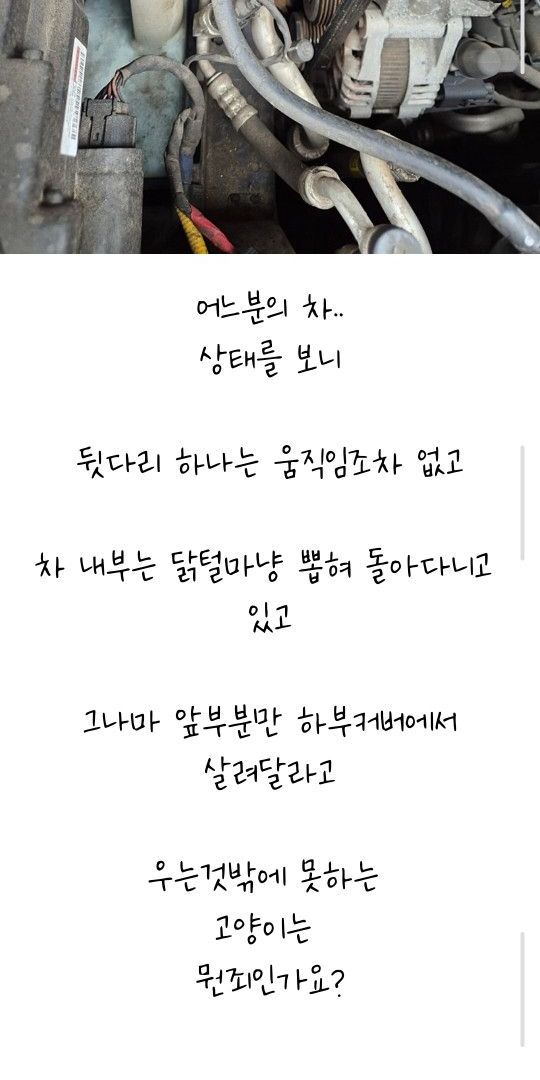 어느분의 차..
상태를 보니
뒷다리 하나는 움직임조차 없고
차 내부는 닭털마냥 뽑혀 돌아다니고
있고
그나마 앞부분만 하부커버에서
살려달라고
우는것밖에 못하는
고양이는
뭔죄인가요?